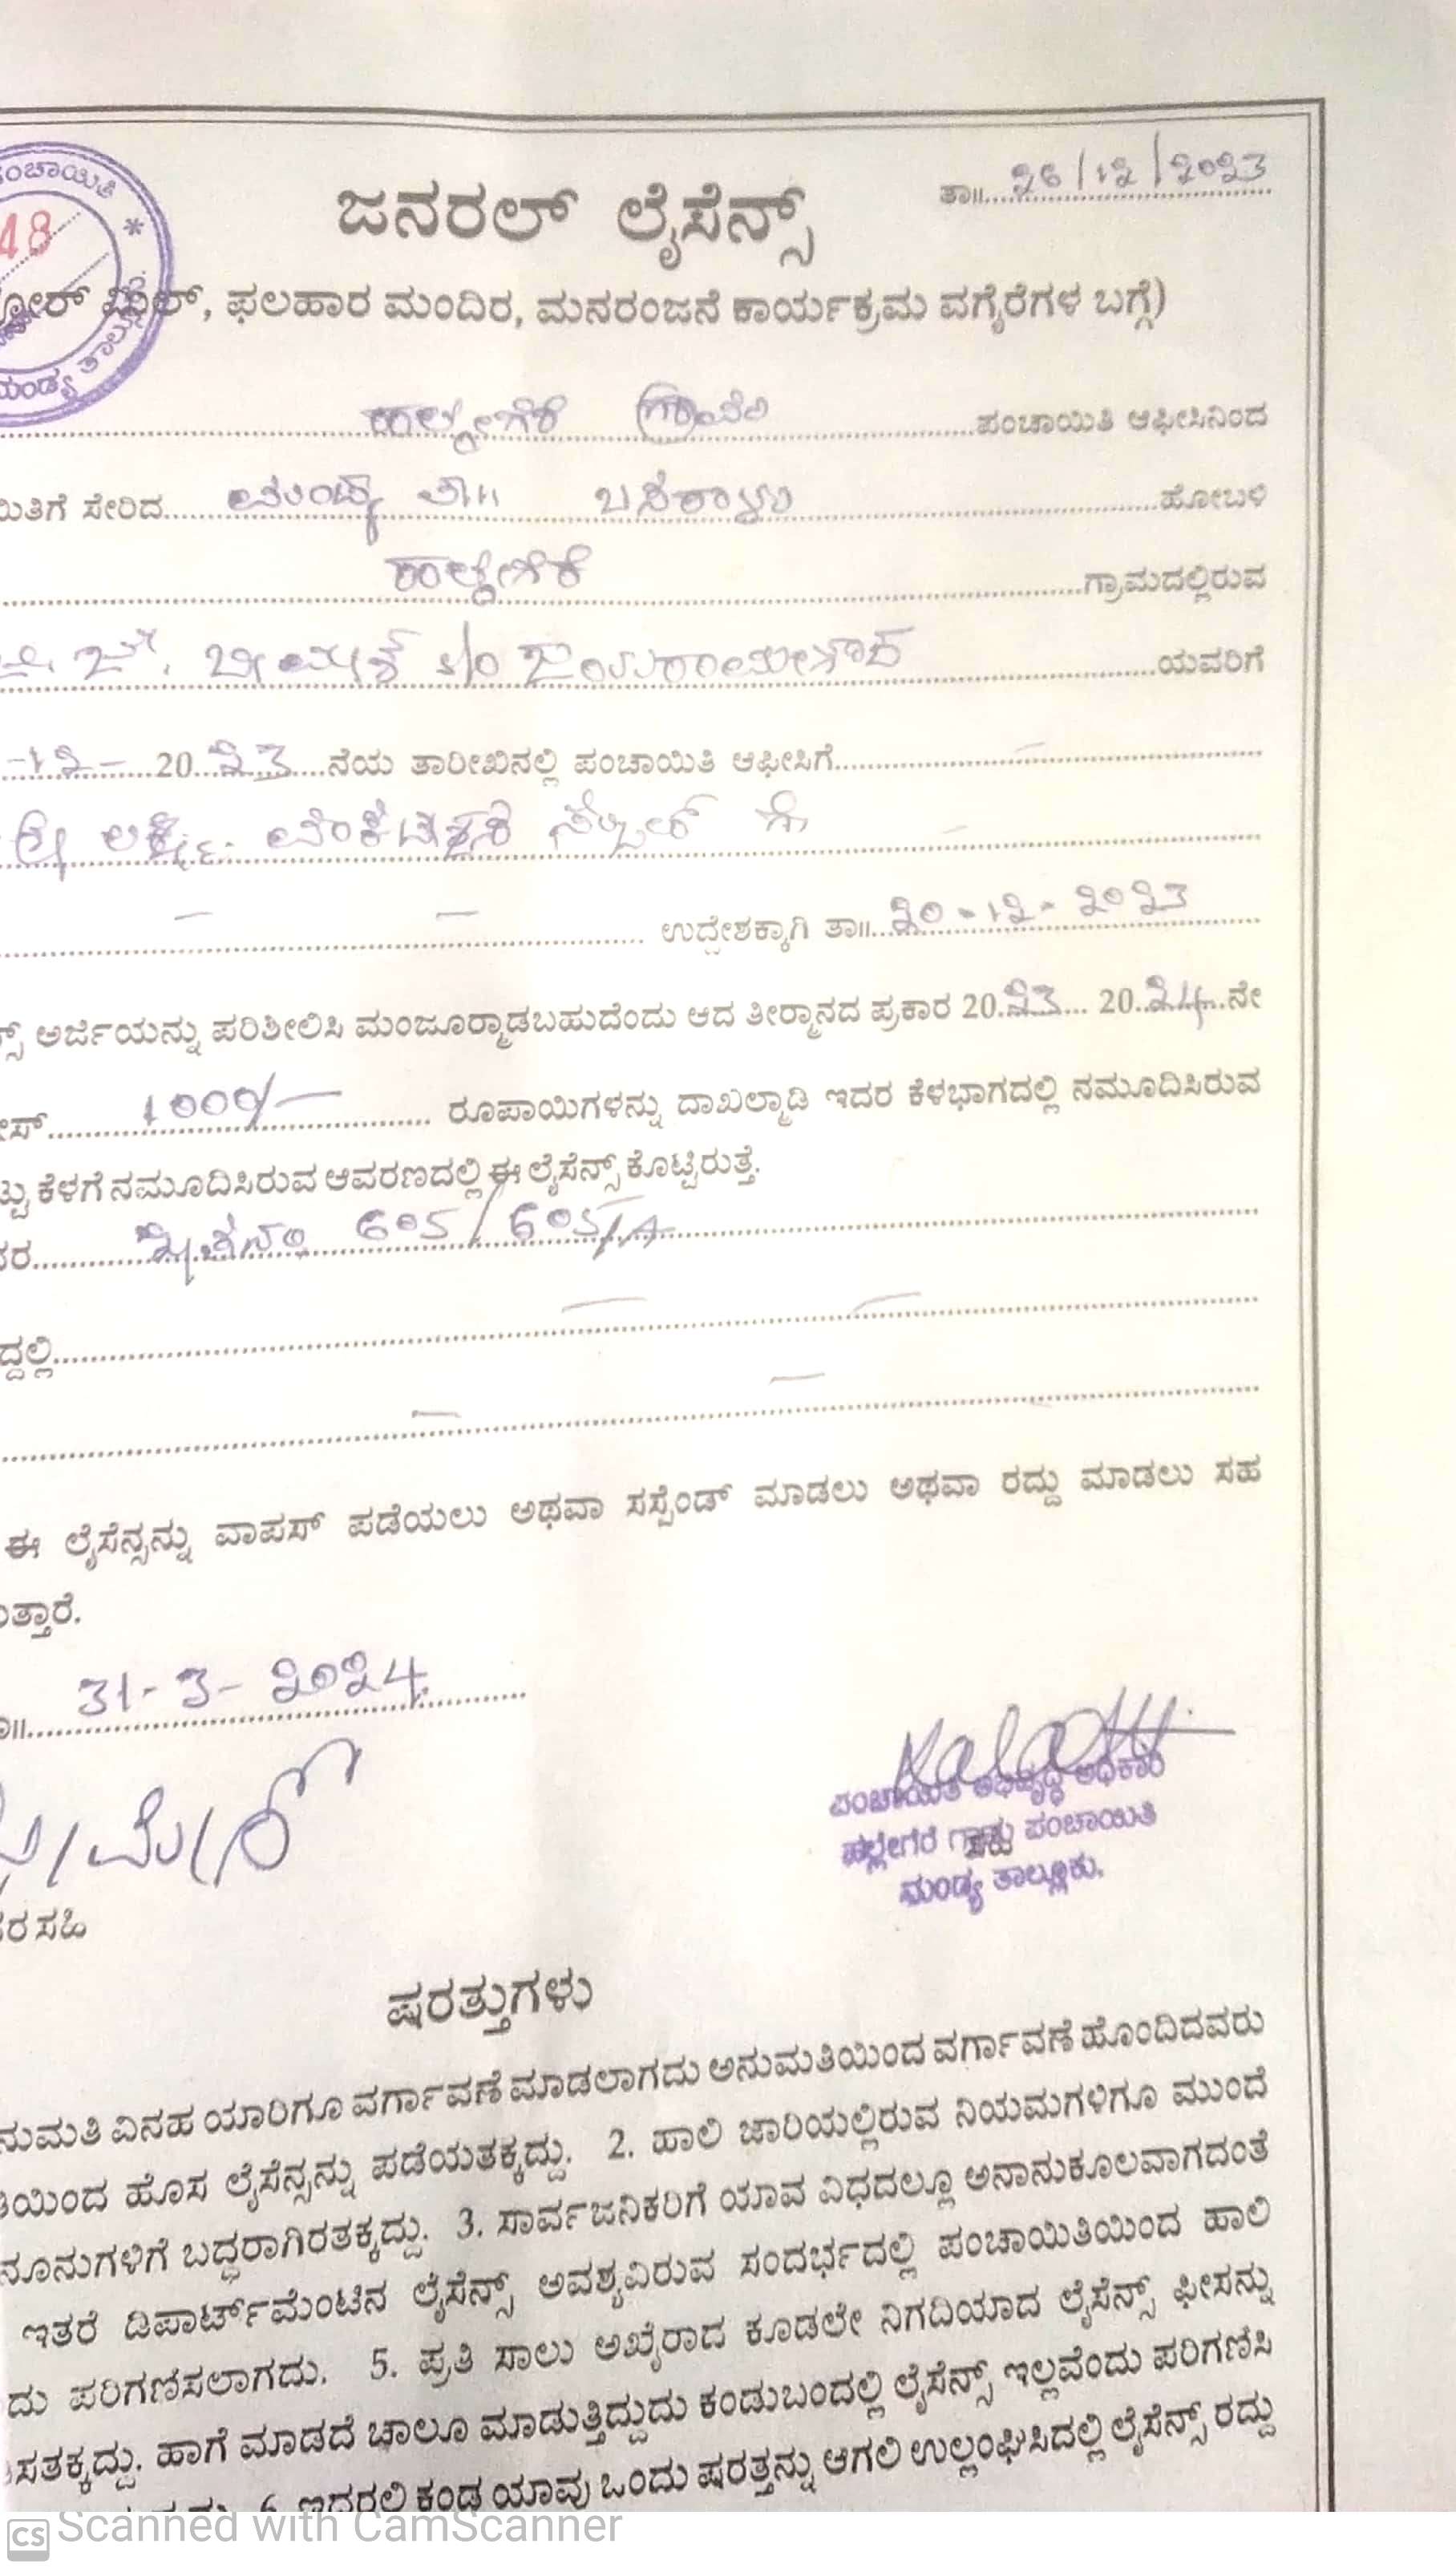 ಪಂಚಾಯಿತಿ *
48
ಮಂಡ್ಯ ತಾಲ್ಲೂಕು
ತಾ॥ 26/12/2023
ಜನರಲ್ ಲೈಸೆನ್ಸ್
ಮಿಲ್, ಫಲಹಾರ ಮಂದಿರ, ಮನರಂಜನೆ ಕಾರ್ಯಕ್ರಮ ವಗೈರೆಗಳ ಬಗ್ಗೆ)
ಹಲ್ಲೇಗೆರೆ ಗ್ರಾಮ ಪಂಚಾಯಿತಿ ಆಫೀಸಿನಿಂದ
ಯಿತಿಗೆ ಸೇರಿದ ಮಂಡ್ಯ ತಾ॥ ಬಸರಾಳು ಹೋಬಳಿ
ಹಲ್ಲೇಗೆರೆ ಗ್ರಾಮದಲ್ಲಿರುವ
ಯವರಿಗೆ
-12- 2023 ನೆಯ ತಾರೀಖಿನಲ್ಲಿ ಪಂಚಾಯಿತಿ ಆಫೀಸಿಗೆ
ಶ್ರೀ ಲಕ್ಷ್ಮೀ ವೆಂಕಟೇಶ್ವರ
ಉದ್ದೇಶಕ್ಕಾಗಿ ತಾ॥ 20-12-2023
ನ್ಸ್ ಅರ್ಜಿಯನ್ನು ಪರಿಶೀಲಿಸಿ ಮಂಜೂರ್ಮಾಡಬಹುದೆಂದು ಆದ ತೀರ್ಮಾನದ ಪ್ರಕಾರ 2023 2024 ನೇ
ೀಸ್ 1000/- ರೂಪಾಯಿಗಳನ್ನು ದಾಖಲ್ಮಾಡಿ ಇದರ ಕೆಳಭಾಗದಲ್ಲಿ ನಮೂದಿಸಿರುವ
ಟ್ಟು ಕೆಳಗೆ ನಮೂದಿಸಿರುವ ಆವರಣದಲ್ಲಿ ಈ ಲೈಸೆನ್ಸ್ ಕೊಟ್ಟಿರುತ್ತೆ.
ವರ 605/605/A
ದ್ದಲ್ಲಿ
ಈ ಲೈಸೆನ್ಸನ್ನು ವಾಪಸ್ ಪಡೆಯಲು ಅಥವಾ ಸಸ್ಪೆಂಡ್ ಮಾಡಲು ಅಥವಾ ರದ್ದು ಮಾಡಲು ಸಹ
ತ್ತಾರೆ.
ತಾ॥ 31-3-2024
ರ ಸಹಿ
ಪಂಚಾಯಿತಿ ಅಭಿವೃದ್ಧಿ ಅಧಿಕಾರಿ
ಹಲ್ಲೇಗೆರೆ ಗ್ರಾಮ ಪಂಚಾಯಿತಿ
ಮಂಡ್ಯ ತಾಲ್ಲೂಕು.
ಷರತ್ತುಗಳು
ನುಮತಿ ವಿನಹ ಯಾರಿಗೂ ವರ್ಗಾವಣೆ ಮಾಡಲಾಗದು ಅನುಮತಿಯಿಂದ ವರ್ಗಾವಣೆ ಹೊಂದಿದವರು
ತಿಯಿಂದ ಹೊಸ ಲೈಸೆನ್ಸನ್ನು ಪಡೆಯತಕ್ಕದ್ದು. 2. ಹಾಲಿ ಜಾರಿಯಲ್ಲಿರುವ ನಿಯಮಗಳಿಗೂ ಮುಂದೆ
ನೂನುಗಳಿಗೆ ಬದ್ಧರಾಗಿರತಕ್ಕದ್ದು. 3. ಸಾರ್ವಜನಿಕರಿಗೆ ಯಾವ ವಿಧದಲ್ಲೂ ಅನಾನುಕೂಲವಾಗದಂತೆ
ಇತರೆ ಡಿಪಾರ್ಟ್‌ಮೆಂಟಿನ ಲೈಸೆನ್ಸ್ ಅವಶ್ಯವಿರುವ ಸಂದರ್ಭದಲ್ಲಿ ಪಂಚಾಯಿತಿಯಿಂದ ಹಾಲಿ
ದು ಪರಿಗಣಿಸಲಾಗದು. 5. ಪ್ರತಿ ಸಾಲು ಅಖೈರಾದ ಕೂಡಲೇ ನಿಗದಿಯಾದ ಲೈಸೆನ್ಸ್ ಫೀಸನ್ನು
ಸತಕ್ಕದ್ದು. ಹಾಗೆ ಮಾಡದೆ ಚಾಲೂ ಮಾಡುತ್ತಿದ್ದುದು ಕಂಡುಬಂದಲ್ಲಿ ಲೈಸೆನ್ಸ್ ಇಲ್ಲವೆಂದು ಪರಿಗಣಿಸಿ
6. ಇದರಲಿ ಕಂಡ ಯಾವು ಒಂದು ಷರತ್ತನ್ನು ಆಗಲಿ ಉಲ್ಲಂಘಿಸಿದಲ್ಲಿ ಲೈಸೆನ್ಸ್ ರದ್ದು
CS Scanned with CamScanner